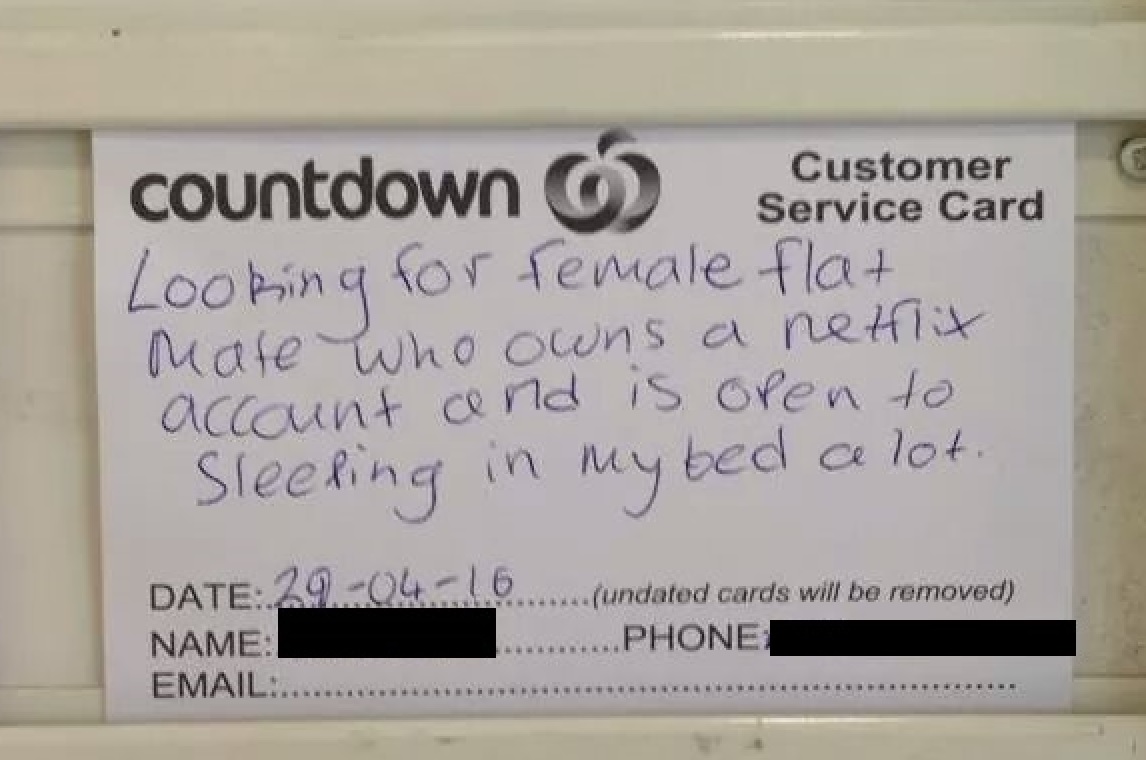 countdown
Customer
Service Card
Looking for female flat
mate who owns a netflix
account and is open to
Sleeping in my bed a lot.
DATE:29-04-16.......(undated cards will be removed)
NAME:............PHONE:
EMAIL:..........................................................